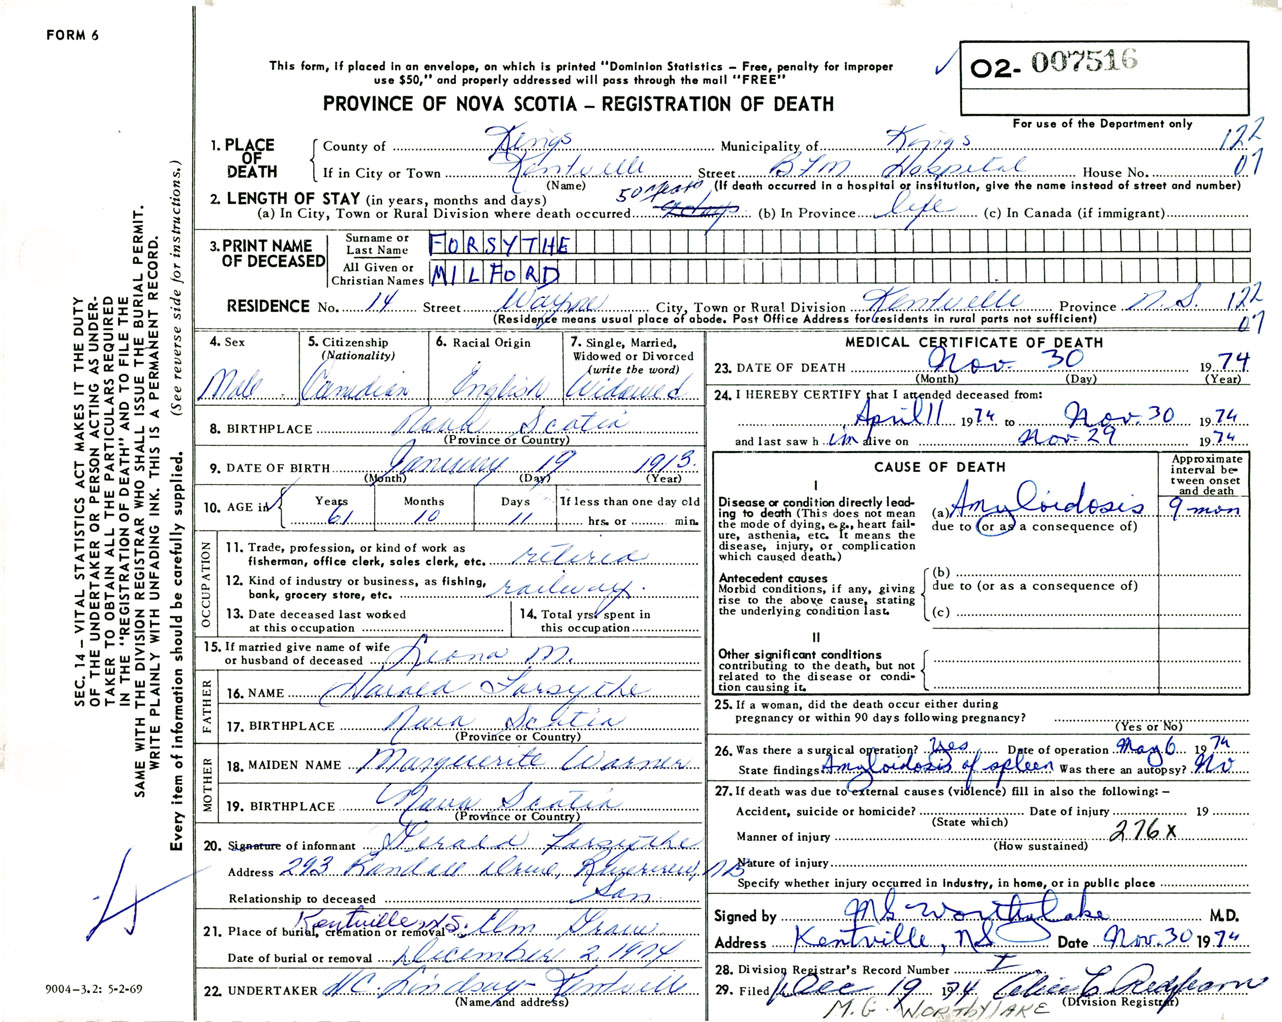 FORM 6
This form, if placed in an envelope, on which is printed "Dominion Statistics – Free, penalty for improper
use $50," and properly addressed will pass through the mail "FREE"
PROVINCE OF NOVA SCOTIA – REGISTRATION OF DEATH
02- 007516
For use of the Department only
1. PLACE OF DEATH County of Kings Municipality of Kings 122
If in City or Town Kentville Street BFM Hospital House No. 07
(Name) (If death occurred in a hospital or institution, give the name instead of street and number)
2. LENGTH OF STAY (in years, months and days) 50 years
(a) In City, Town or Rural Division where death occurred (b) In Province life (c) In Canada (if immigrant)
3. PRINT NAME OF DECEASED
Surname or Last Name FORSYTHE
All Given or Christian Names MILFORD
RESIDENCE No. 14 Street Wayne City, Town or Rural Division Kentville Province N.S. 122
(Residence means usual place of abode. Post Office Address for residents in rural parts not sufficient) 07
4. Sex Male
5. Citizenship (Nationality) Canadian
6. Racial Origin English
7. Single, Married, Widowed or Divorced (write the word) Widowed
8. BIRTHPLACE Nova Scotia
(Province or Country)
9. DATE OF BIRTH January 19 1913
(Month) (Day) (Year)
10. AGE in Years 61 Months 10 Days 11 If less than one day old
hrs. or min.
OCCUPATION
11. Trade, profession, or kind of work as
fisherman, office clerk, sales clerk, etc. retired
12. Kind of industry or business, as fishing,
bank, grocery store, etc. railway.
13. Date deceased last worked
at this occupation
14. Total yrs. spent in
this occupation
15. If married give name of wife
or husband of deceased Leona M.
FATHER
16. NAME Harold Forsythe
17. BIRTHPLACE Nova Scotia
(Province or Country)
MOTHER
18. MAIDEN NAME Marguerite Warner
19. BIRTHPLACE Nova Scotia
(Province or Country)
20. Signature of informant Gerald Forsythe
Address 293 Randall Drive, Riverview, NB
Relationship to deceased Son
Kentville N.S.
21. Place of burial, cremation or removal Elm Grove
Date of burial or removal December 2, 1974
22. UNDERTAKER H.C. Lindsay - Kentville
(Name and address)
MEDICAL CERTIFICATE OF DEATH
23. DATE OF DEATH Nov. 30 1974
(Month) (Day) (Year)
24. I HEREBY CERTIFY that I attended deceased from:
April 11 1974 to Nov. 30 1974
and last saw him alive on Nov. 29 1974
CAUSE OF DEATH
Approximate interval between onset and death
I
Disease or condition directly lead-
ing to death (This does not mean
the mode of dying, e.g., heart fail-
ure, asthenia, etc. It means the
disease, injury, or complication
which caused death.)
(a) Amyloidosis 9 mon
due to (or as a consequence of)
Antecedent causes
Morbid conditions, if any, giving
rise to the above cause, stating
the underlying condition last.
(b)
due to (or as a consequence of)
(c)
II
Other significant conditions
contributing to the death, but not
related to the disease or condi-
tion causing it.
25. If a woman, did the death occur either during
pregnancy or within 90 days following pregnancy?
(Yes or No)
26. Was there a surgical operation? Yes Date of operation May 6 1974
State findings Amyloidosis of spleen Was there an autopsy? No
27. If death was due to external causes (violence) fill in also the following: –
Accident, suicide or homicide? Date of injury 19
(State which)
Manner of injury 276x
(How sustained)
Nature of injury
Specify whether injury occurred in industry, in home, or in public place
Signed by MG Worthylake M.D.
Address Kentville, NS Date Nov. 30 1974
28. Division Registrar's Record Number
29. Filed Dec 19 1974
(Division Registrar)
M. G. WORTHYLAKE
SEC. 14 – VITAL STATISTICS ACT MAKES IT THE DUTY
OF THE UNDERTAKER OR PERSON ACTING AS UNDER-
TAKER TO OBTAIN ALL THE PARTICULARS REQUIRED
IN THE "REGISTRATION OF DEATH" AND TO FILE THE
SAME WITH THE DIVISION REGISTRAR WHO SHALL ISSUE THE BURIAL PERMIT.
WRITE PLAINLY WITH UNFADING INK. THIS IS A PERMANENT RECORD.
Every item of information should be carefully supplied. (See reverse side for instructions.)
9004–3.2: 5-2-69